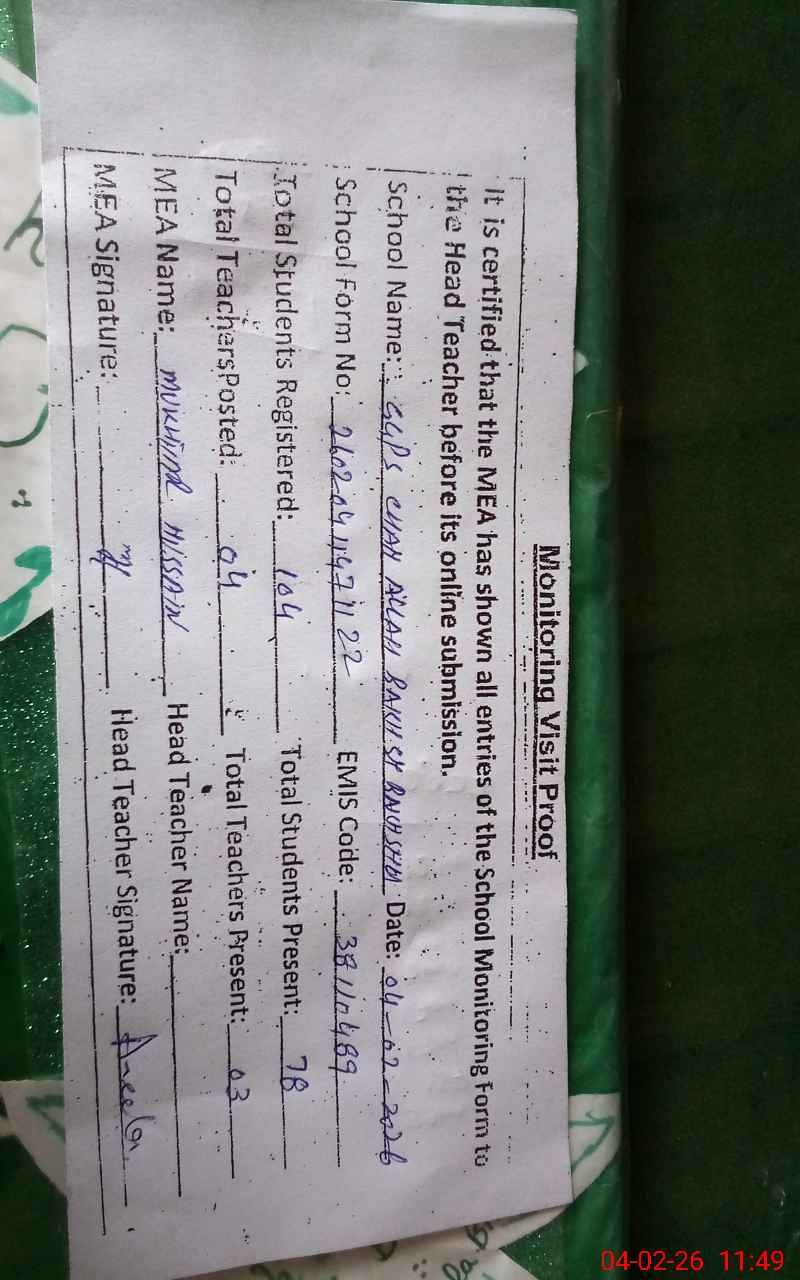 Monitoring Visit Proof
It is certified that the MEA has shown all entries of the School Monitoring Form to
the Head Teacher before its online submission.
School Name: GGPS CHAH ALLAH BAKHSH Date: 04-02-2026
School Form No: EMIS Code: 38110489
Total Students Registered: 104 Total Students Present: 78
Total Teachers Posted: 04 Total Teachers Present: 03
MEA Name: MUKHTIAR HUSSAIN Head Teacher Name:
MEA Signature: Head Teacher Signature: Aneela
04-02-26 11:49